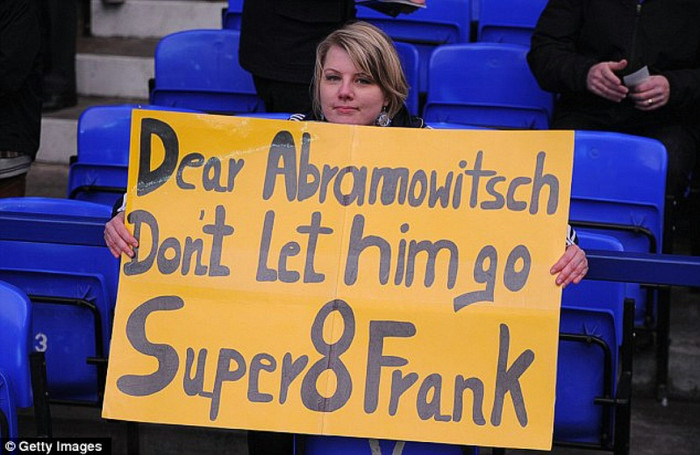 Dear Abramowitsch
Don't let him go
Super 8 Frank
3
© Getty Images